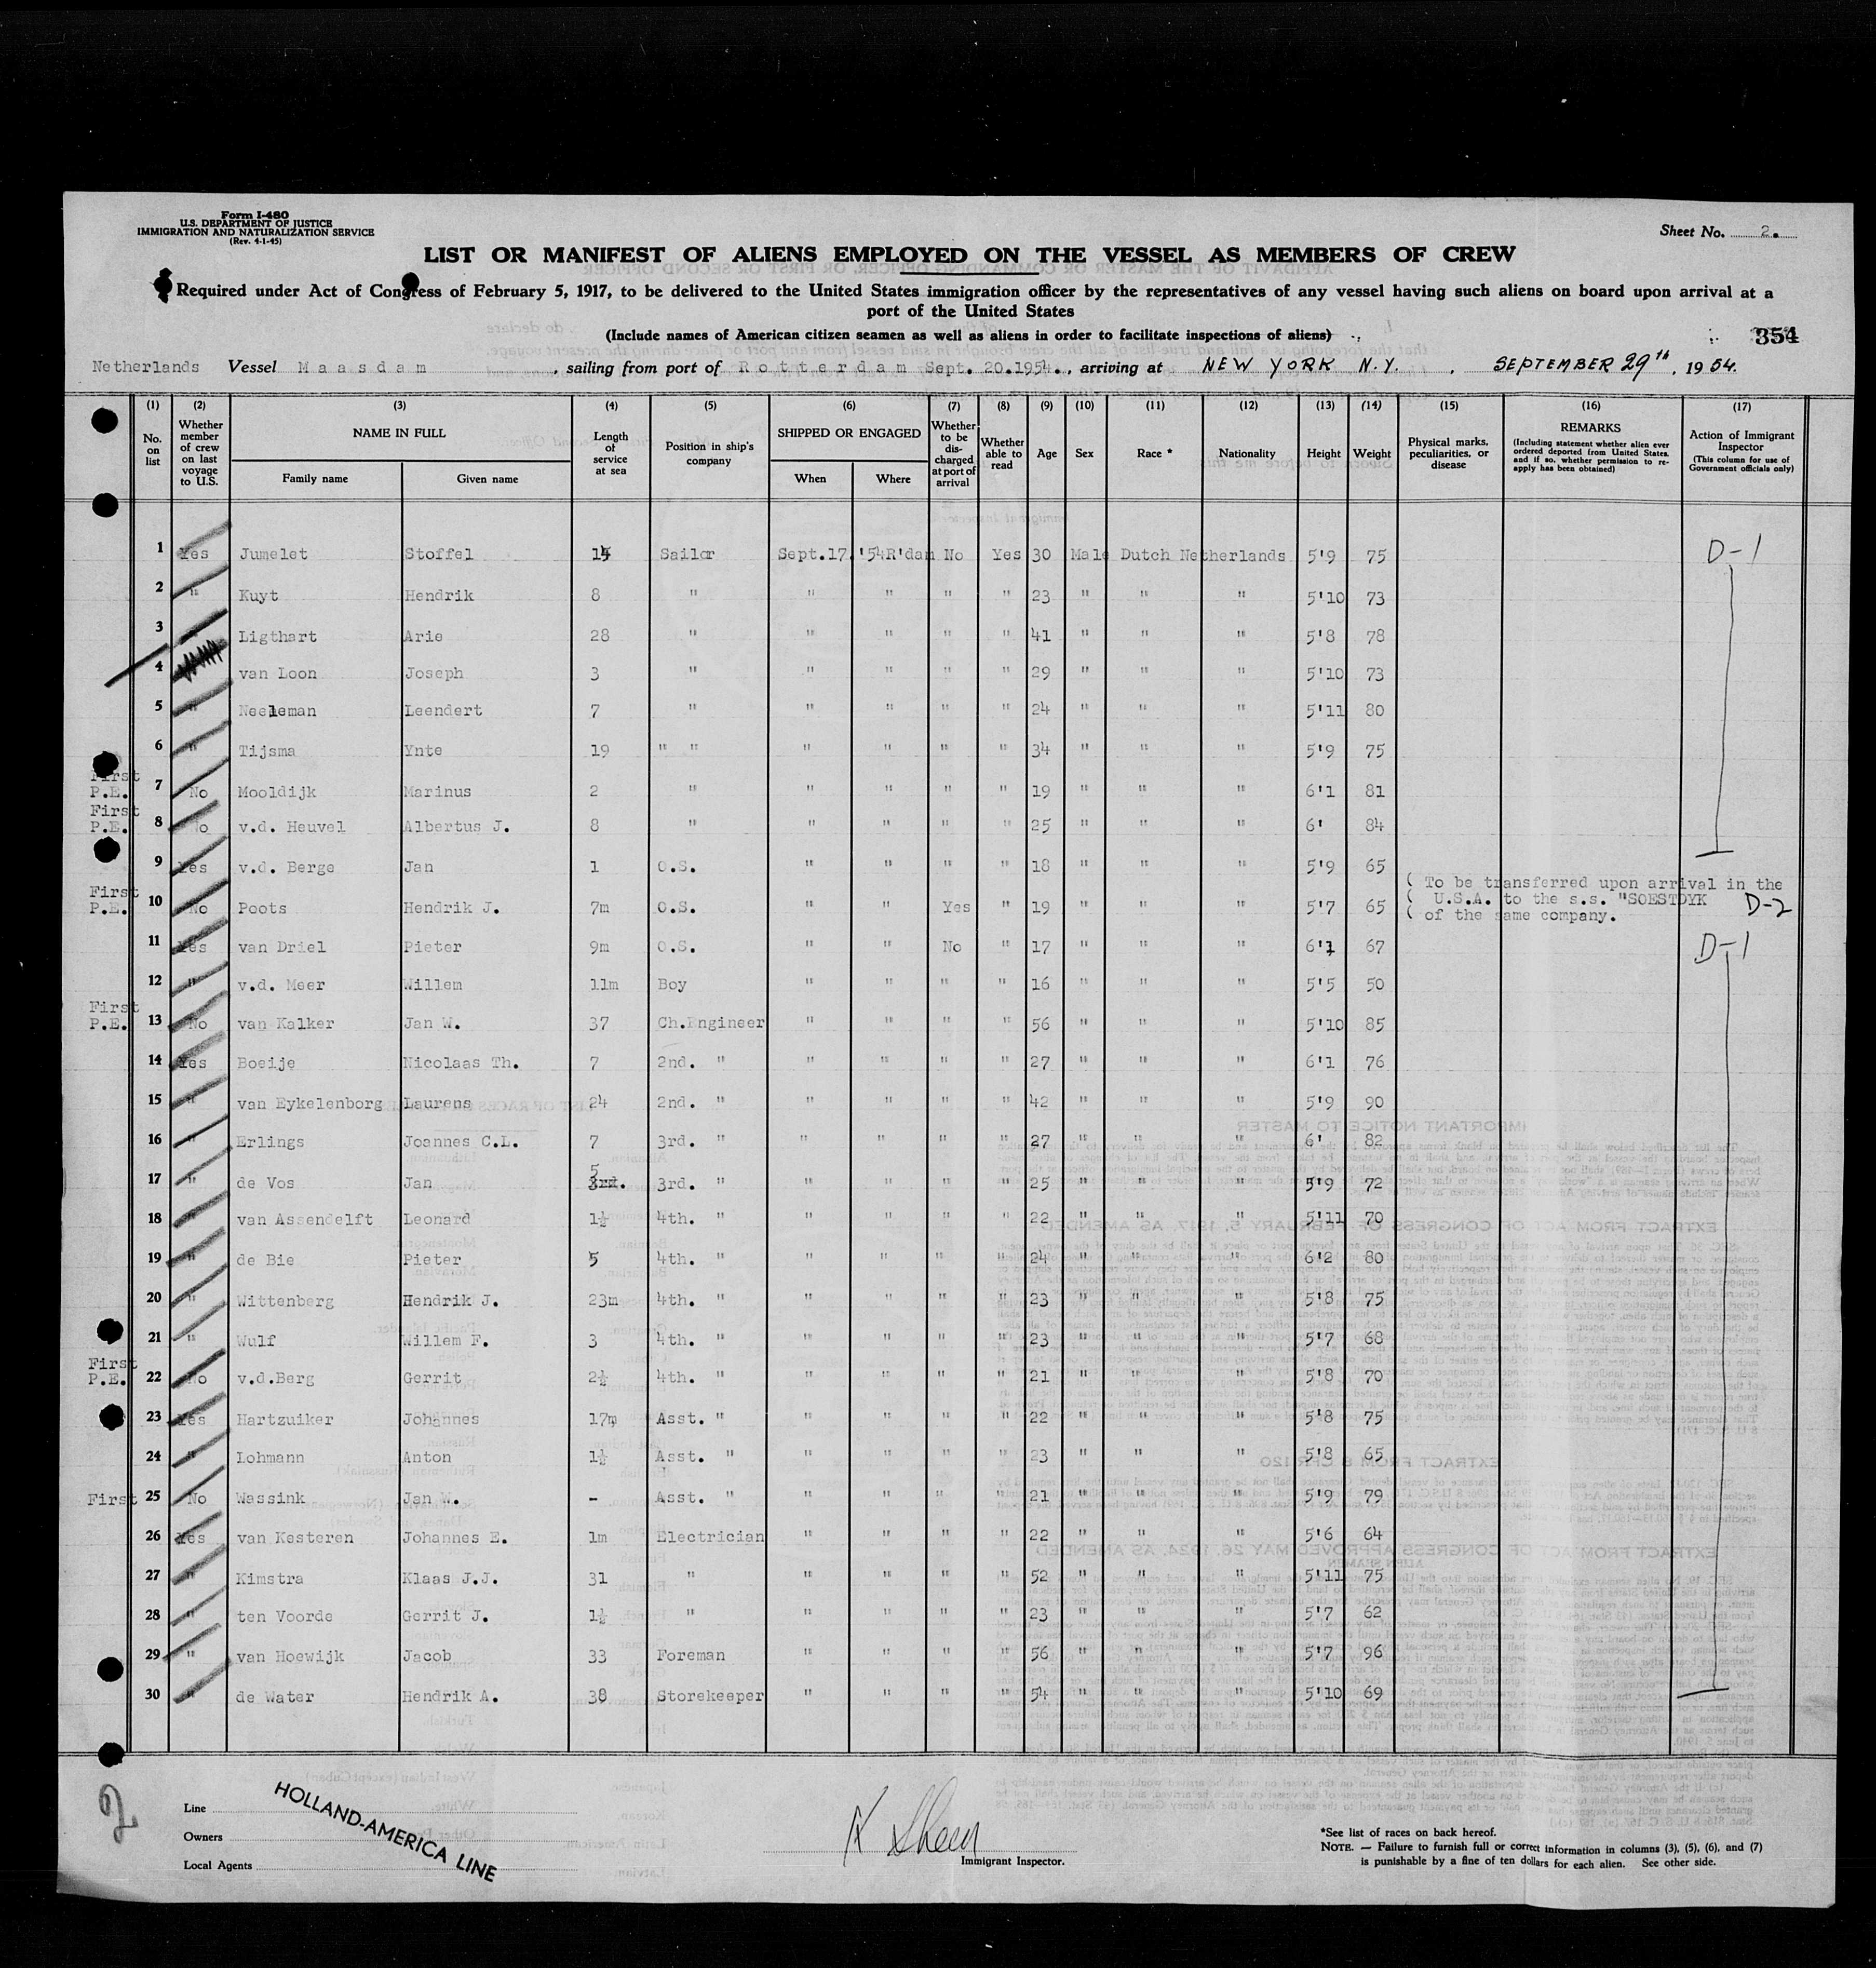 Form I-480
U.S. DEPARTMENT OF JUSTICE
IMMIGRATION AND NATURALIZATION SERVICE
(Rev. 4-1-45)
Sheet No. 2.
LIST OR MANIFEST OF ALIENS EMPLOYED ON THE VESSEL AS MEMBERS OF CREW
Required under Act of Congress of February 5, 1917, to be delivered to the United States immigration officer by the representatives of any vessel having such aliens on board upon arrival at a
port of the United States
(Include names of American citizen seamen as well as aliens in order to facilitate inspections of aliens)
354
Netherlands Vessel Maasdam, sailing from port of Rotterdam Sept. 20.1954., arriving at NEW YORK N.Y., SEPTEMBER 29th, 1954.
(1) (2) (3) (4) (5) (6) (7) (8) (9) (10) (11) (12) (13) (14) (15) (16) (17)
No. on list
Whether member of crew on last voyage to U.S.
NAME IN FULL
Family name Given name
Length of service at sea
Position in ship's company
SHIPPED OR ENGAGED
When Where
Whether to be discharged at port of arrival
Whether able to read
Age Sex Race * Nationality Height Weight
Physical marks, peculiarities, or disease
REMARKS
(Including statement whether alien ever ordered deported from United States, and if so, whether permission to re-apply has been obtained)
Action of Immigrant Inspector
(This column for use of Government officials only)
1 Yes Jumelet Stoffel 15 Sailor Sept.17.'54 R'dam No Yes 30 Male Dutch Netherlands 5'9 75 D-1
2 " Kuyt Hendrik 8 " " " " " 23 " " " 5'10 73
3 Ligthart Arie 28 " " " " " 41 " " " 5'8 78
4 van Loon Joseph 3 " " " " " 29 " " " 5'10 73
5 " Neeleman Leendert 7 " " " " " 24 " " " 5'11 80
6 " Tijsma Ynte 19 " " " " " " 34 " " " 5'9 75
First P.E. 7 No Mooldijk Marinus 2 " " " " " 19 " " " 6'1 81
First P.E. 8 No v.d. Heuvel Albertus J. 8 " " " " " 25 " " " 6' 84
9 Yes v.d. Berge Jan 1 O.S. " " " " 18 " " " 5'9 65
First P.E. 10 No Poots Hendrik J. 7m O.S. " " Yes " 19 " " " 5'7 65 ( To be transferred upon arrival in the
( U.S.A. to the s.s. "SOESTDYK D-2
( of the same company.
11 Yes van Driel Pieter 9m O.S. " " No " 17 " " " 6'1 67 D-1
12 " v.d. Meer Willem 11m Boy " " " " 16 " " " 5'5 50
First P.E. 13 No van Kalker Jan W. 37 Ch.Engineer " " " " 56 " " " 5'10 85
14 Yes Boeije Nicolaas Th. 7 2nd. " " " " " 27 " " " 6'1 76
15 " van Eykelenborg Laurens 24 2nd. " " " " " 42 " " " 5'9 90
16 " Erlings Joannes C.L. 7 3rd. " " " " " 27 " " " 6' 82
17 " de Vos Jan 3rd. 5 3rd. " " " " " 25 " " " 5'9 72
18 " van Assendelft Leonard 1½ 4th. " " " " " 22 " " " 5'11 70
19 " de Bie Pieter 5 4th. " " " " " 24 " " " 6'2 80
20 " Wittenberg Hendrik J. 23m 4th. " " " " " 23 " " " 5'8 75
21 " Wulf Willem F. 3 4th. " " " " " 23 " " " 5'7 68
First P.E. 22 No v.d.Berg Gerrit 2½ 4th. " " " " " 21 " " " 5'8 70
23 Yes Hartzuiker Johannes 17m Asst. " " " " " 22 " " " 5'8 75
24 " Lohmann Anton 1½ Asst. " " " " " 23 " " " 5'8 65
First 25 No Wassink Jan W. - Asst. " " " " " 21 " " " 5'9 79
26 Yes van Kesteren Johannes E. 1m Electrician " " " " 22 " " " 5'6 64
27 " Kimstra Klaas J.J. 31 " " " " " 52 " " " 5'11 75
28 " ten Voorde Gerrit J. 1½ " " " " " 23 " " " 5'7 62
29 " van Hoewijk Jacob 33 Foreman " " " " 56 " " " 5'7 96
30 " de Water Hendrik A. 38 Storekeeper " " " " 54 " " " 5'10 69
2
Line
Owners
Local Agents
HOLLAND-AMERICA LINE
Immigrant Inspector.
*See list of races on back hereof.
NOTE. — Failure to furnish full or correct information in columns (3), (5), (6), and (7)
is punishable by a fine of ten dollars for each alien. See other side.